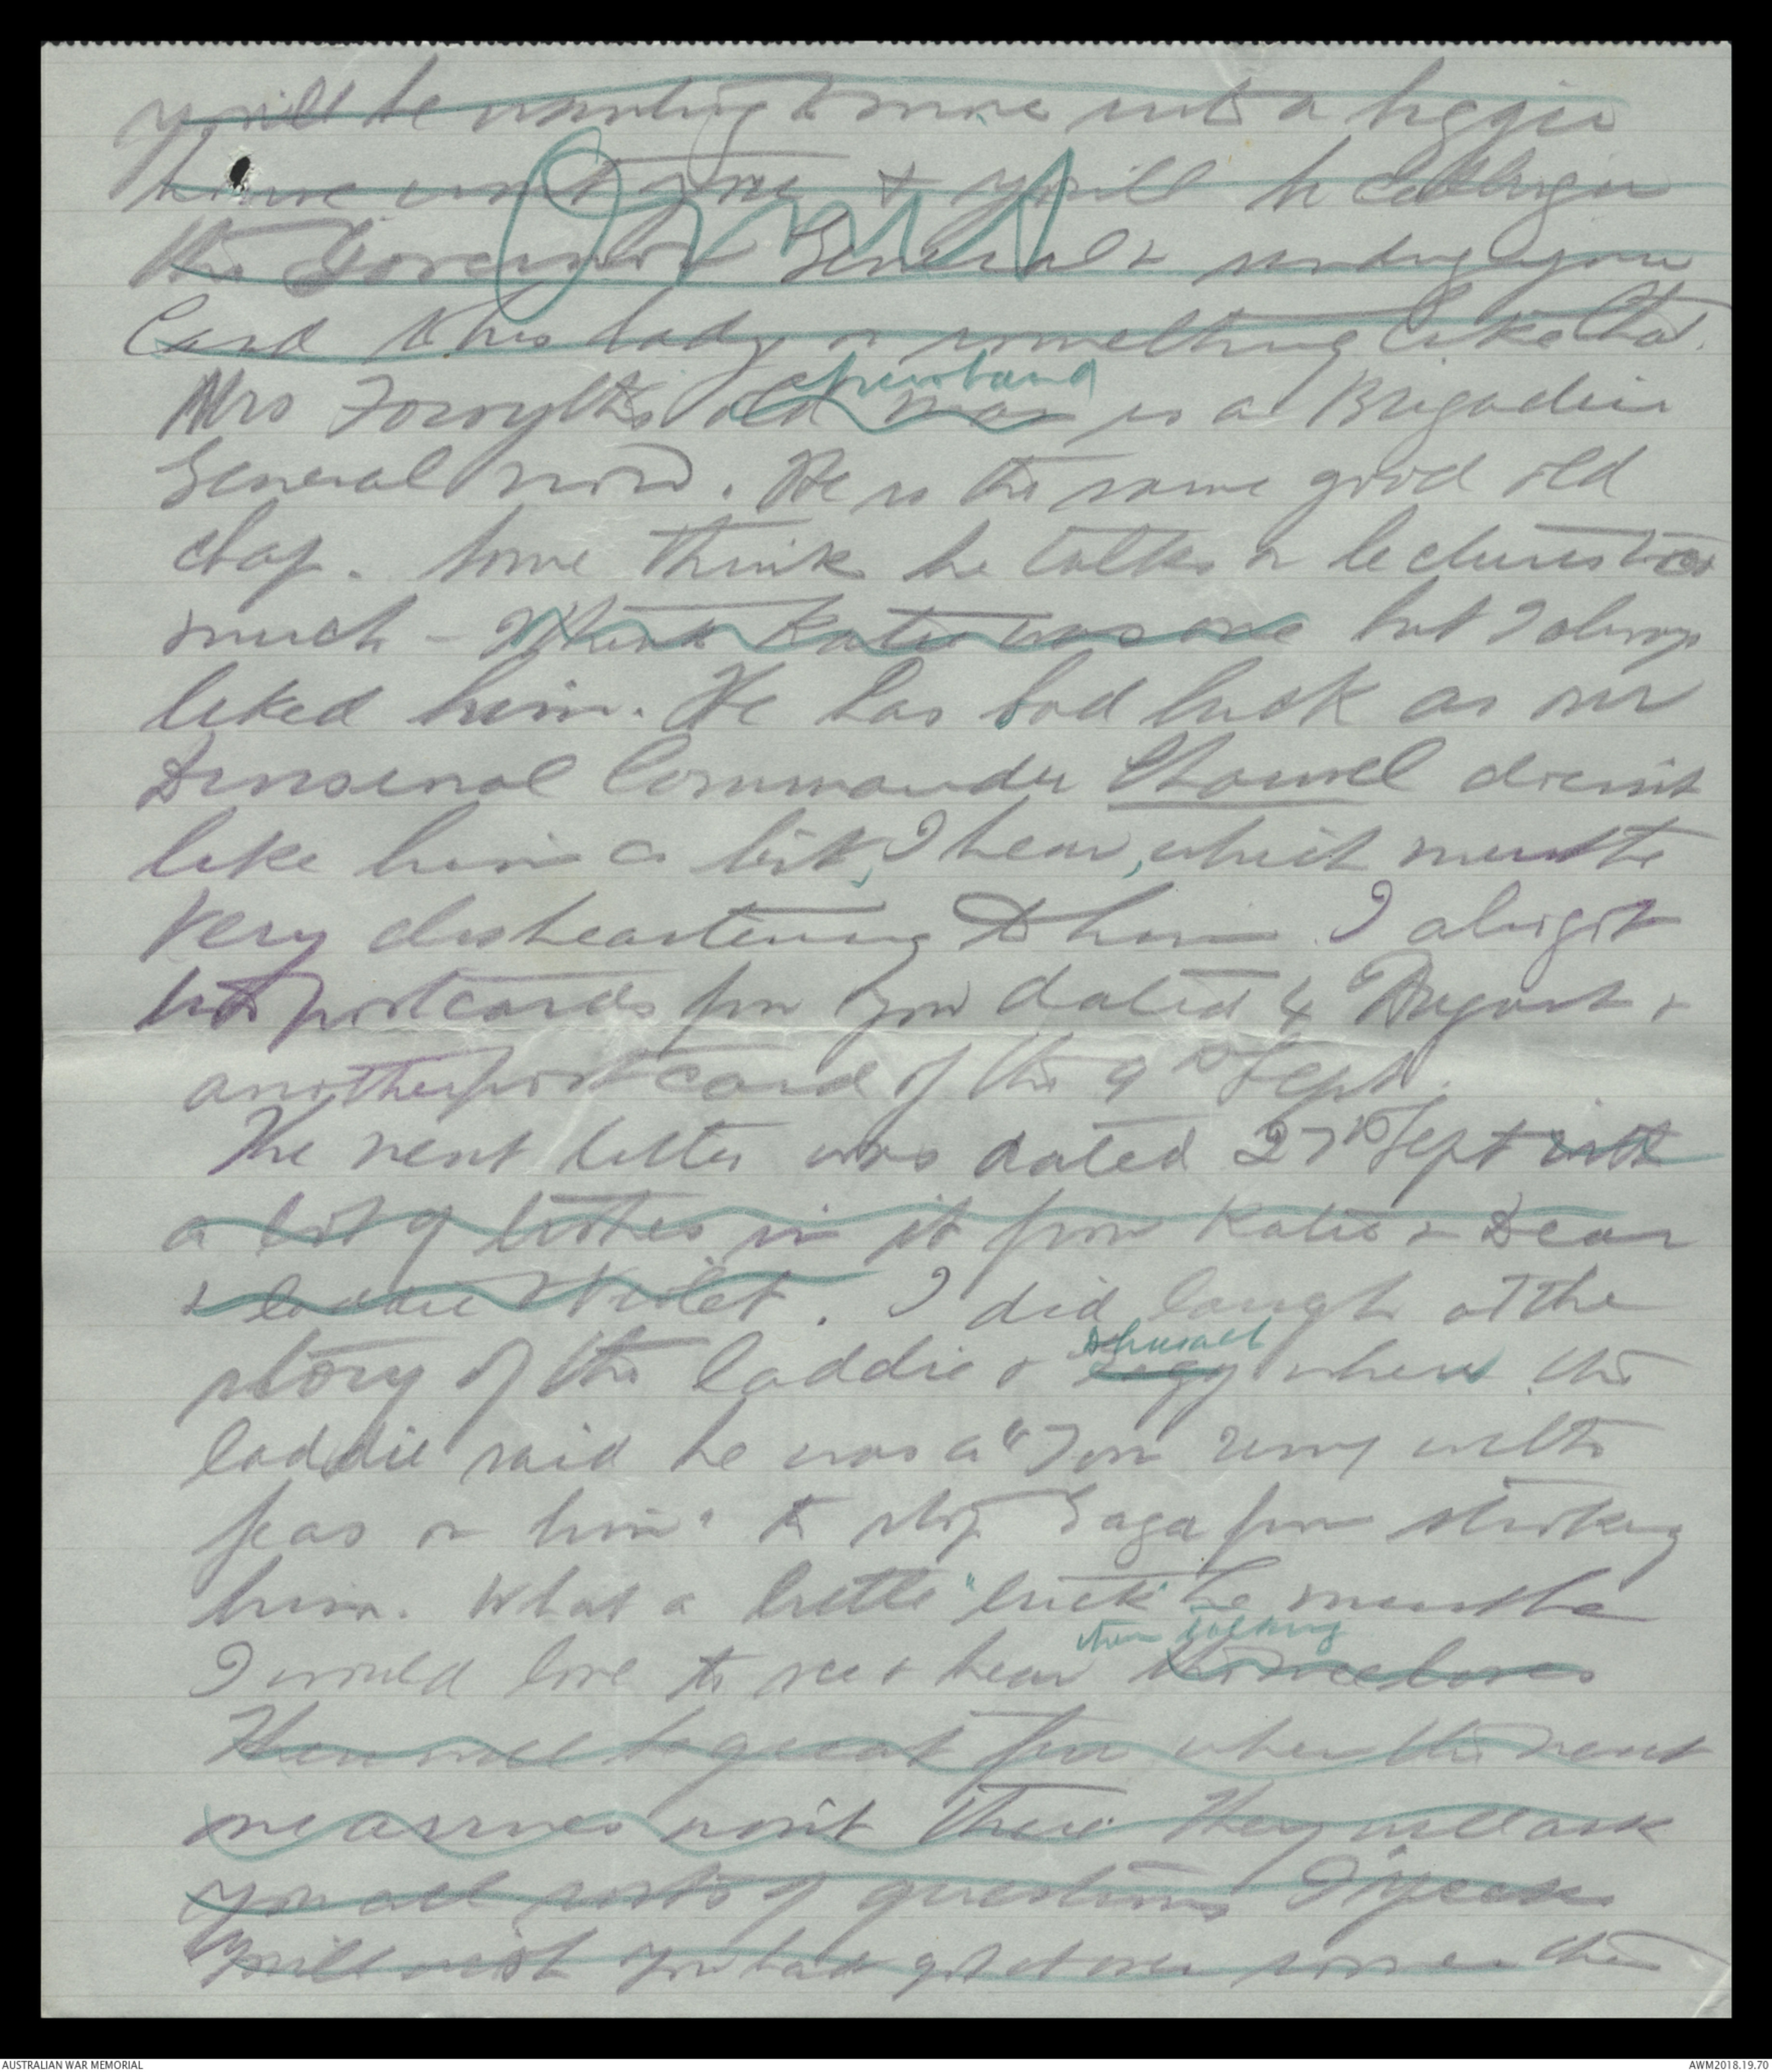 y'will be wanting to move into a bigger
house won't you & y'will be calling on
Omit
the Governor General & sending your
Card to his lady or something like that.
husband
Mrs Forsyth's old man is a Brigadier
General now. He is the same good old
chap. Some think he talks or lectures too
much - I think Katie was one but I always
liked him. He has bad luck as our
Divisional Commander Chauvel doesn't
like him a bit, I hear, which must be
very disheartening to him. I also got
two postcards from you dated 4 August &
another postcard of the 9th Sept.
The next letter was dated 27th Sept with
a lot of in it from Katie & Dear
& laddie & Violet. I did laugh at the
story of the laddie & where the
laddie said he was a "Tom with
on him" to stop Gaga from
him. What a little "brick" he must be
when talking
I would love to see & hear themselves
There will be great fun when the next
one arrives won't there They will ask
you all sorts of questions I
Y'will wish you had got it over sooner then
AUSTRALIAN WAR MEMORIAL
AWM2018.19.70